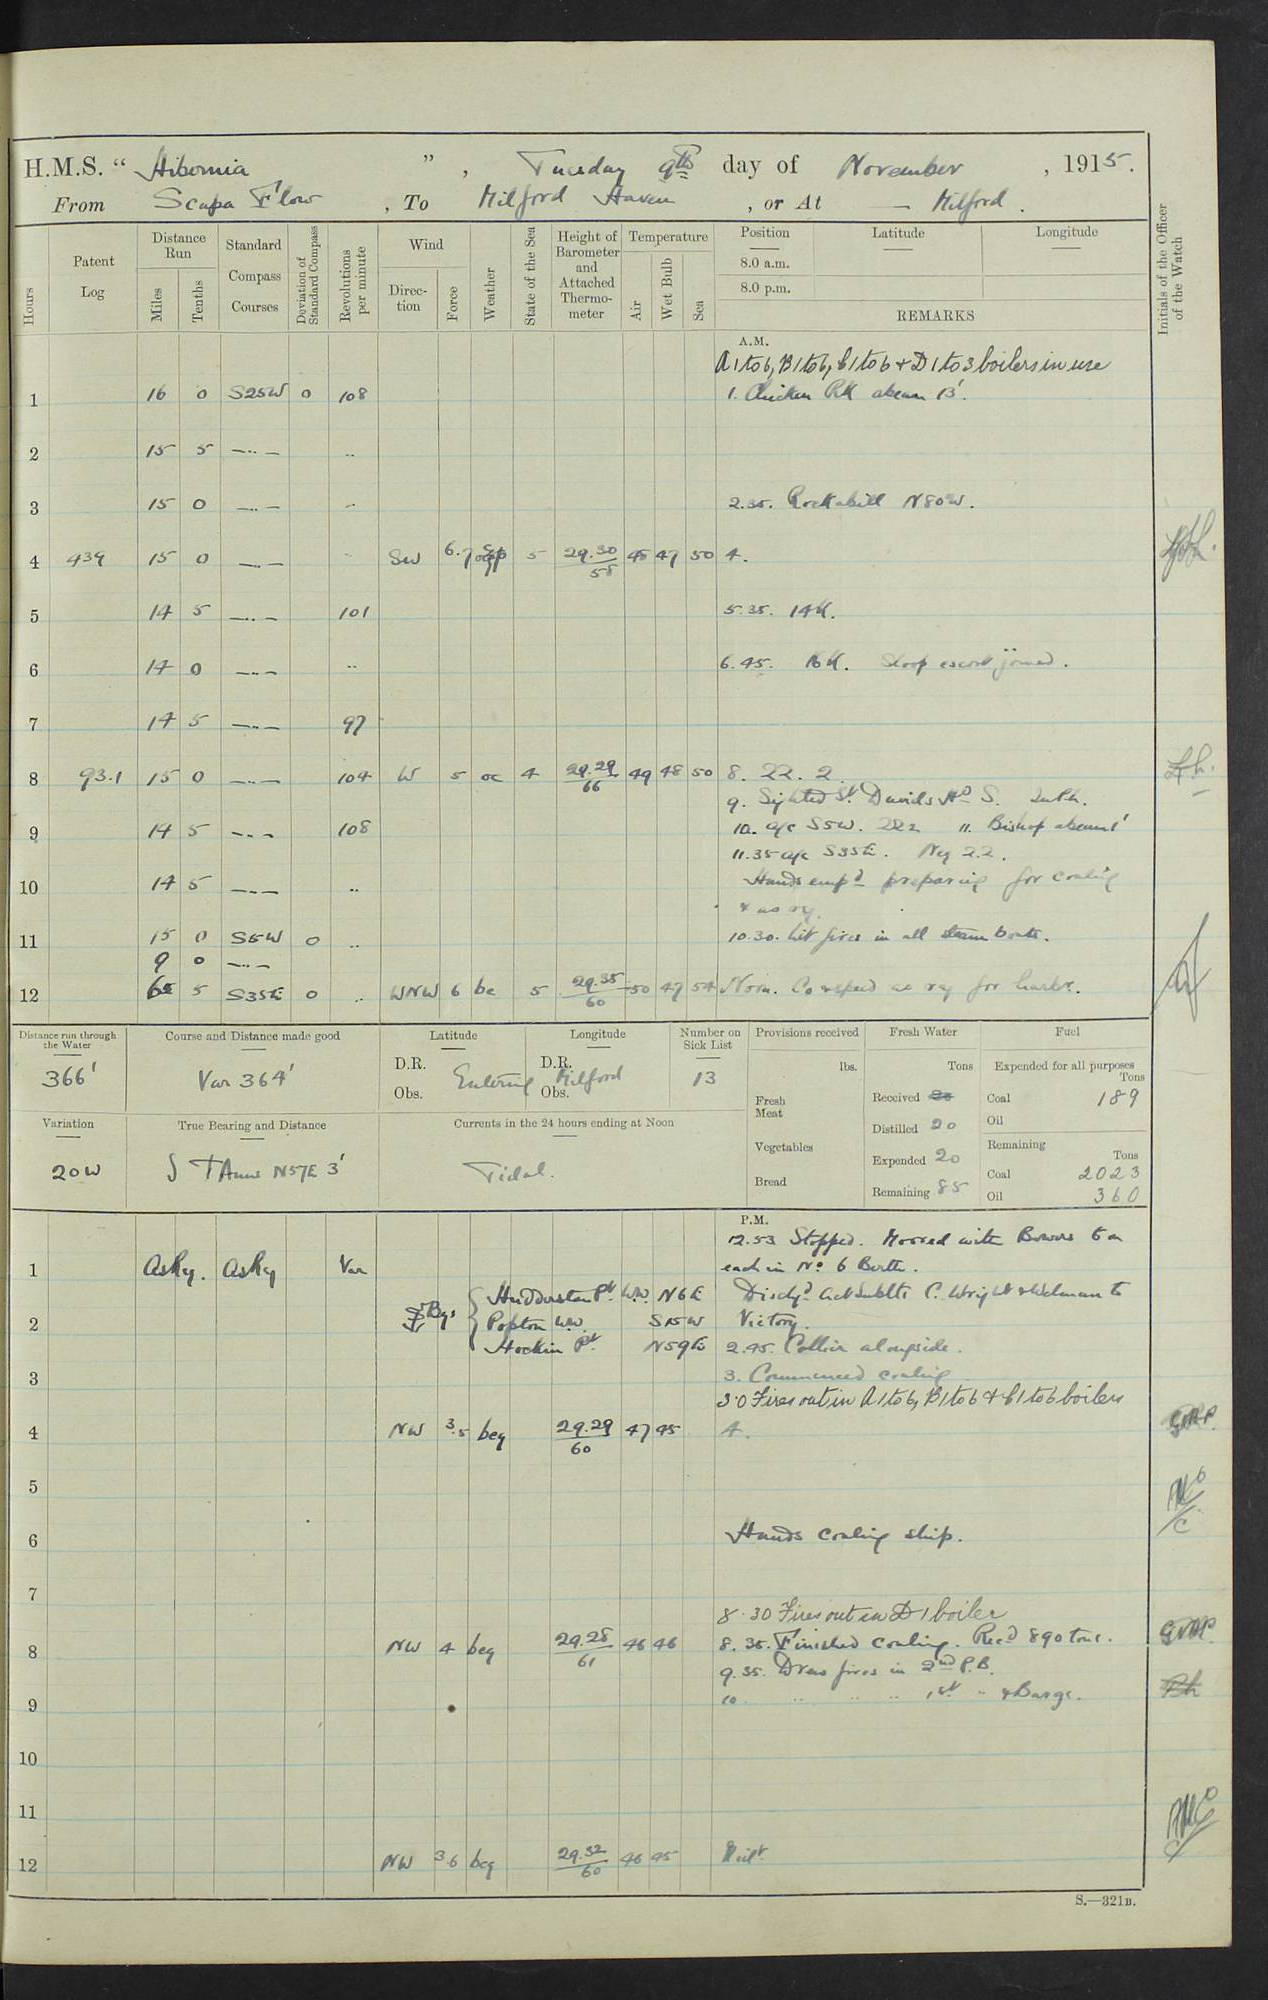 H.M.S. “ Hibernia ” , Tuesday 9th day of November , 1915.
From Scapa Flow , To Milford Haven , or At — Milford .
Hours
Patent Log
Distance Run
Miles
Tenths
Standard Compass Courses
Deviation of Standard Compass
Revolutions per minute
Wind
Direction
Force
Weather
State of the Sea
Height of Barometer and Attached Thermometer
Temperature
Air
Wet Bulb
Sea
Position
Latitude
Longitude
8.0 a.m.
8.0 p.m.
REMARKS
Initials of the Officer of the Watch
A.M.
A 1 to 6, B 1 to 6, C 1 to 6 & D 1 to 3 boilers in use
1 16 0 S25W 0 108 1. Chicken RK abeam 13'.
2 15 5 —..— ..
3 15 0 —..— .. 2.35. Rockabill N80W.
4 439 15 0 —..— .. SW 6.7 5 29.30/58 48 47 50 4.
5 14 5 —..— 101 5.35. 14K.
6 14 0 —..— .. 6.45. 15K. Sloop escort joined.
7 14 5 —..— 97
8 93.1 15 0 —..— 104 W 5 oc 4 29.29/66 49 48 50 8. 22. 2.
9. Sighted St. Davids Hd S.
9 14 5 —..— 108 10. a/c S5W. 11. Bishop abeam 1'
11.35 a/c S35E. 22.
10 14 5 —..— .. Hands empd preparing for coaling
& as rq.
11 15 0 S5W 0 .. 10.30. Lit fires in all steam boats.
9 0 —..—
12 65 5 S35E 0 .. WNW 6 bc 5 29.35/60 50 47 54 Noon. Co & speed as rq for harbr.
Distance run through the Water
366'
Course and Distance made good
Var 364'
Latitude
D.R.
Obs.
Longitude
D.R.
Obs.
Entering Milford
Number on Sick List
13
Provisions received
lbs.
Fresh Meat
Vegetables
Bread
Fresh Water
Tons
Received
Distilled 20
Expended 20
Remaining 85
Fuel
Expended for all purposes
Tons
Coal 189
Oil
Remaining
Tons
Coal 2023
Oil 360
Variation
20W
True Bearing and Distance
St Anns N57E 3'
Currents in the 24 hours ending at Noon
Tidal.
P.M.
12.53 Stopped. Moored with Bowers 6 on
1 As Rq. As Rq Var each in No 6 Berth.
Bgs { Hudderstan Pt W.W. N6E Dischd Act Sublts C. Wright & Welman to
2 Popton W.W. S15W Victory.
Hockin Pt. N59E 2.45. Collier alongside.
3 3. Commenced coaling
3.0 Fires out in A 1 to 6, B 1 to 6 & C 1 to 6 boilers
4 NW 3.5 bcq 29.29/60 47 45 4.
5
6 Hands coaling ship.
7
8.30 Fires out in D 1 boiler
8 NW 4 bcq 29.28/61 46 46 8.35. Finished coaling. Recd 890 tons.
9.35. Drew fires in 2nd P.B.
9 10 .. .. .. 1st .. & Barge.
10
11
12 NW 3.6 bcq 29.32/60 46 45 Midt
S.—321B.